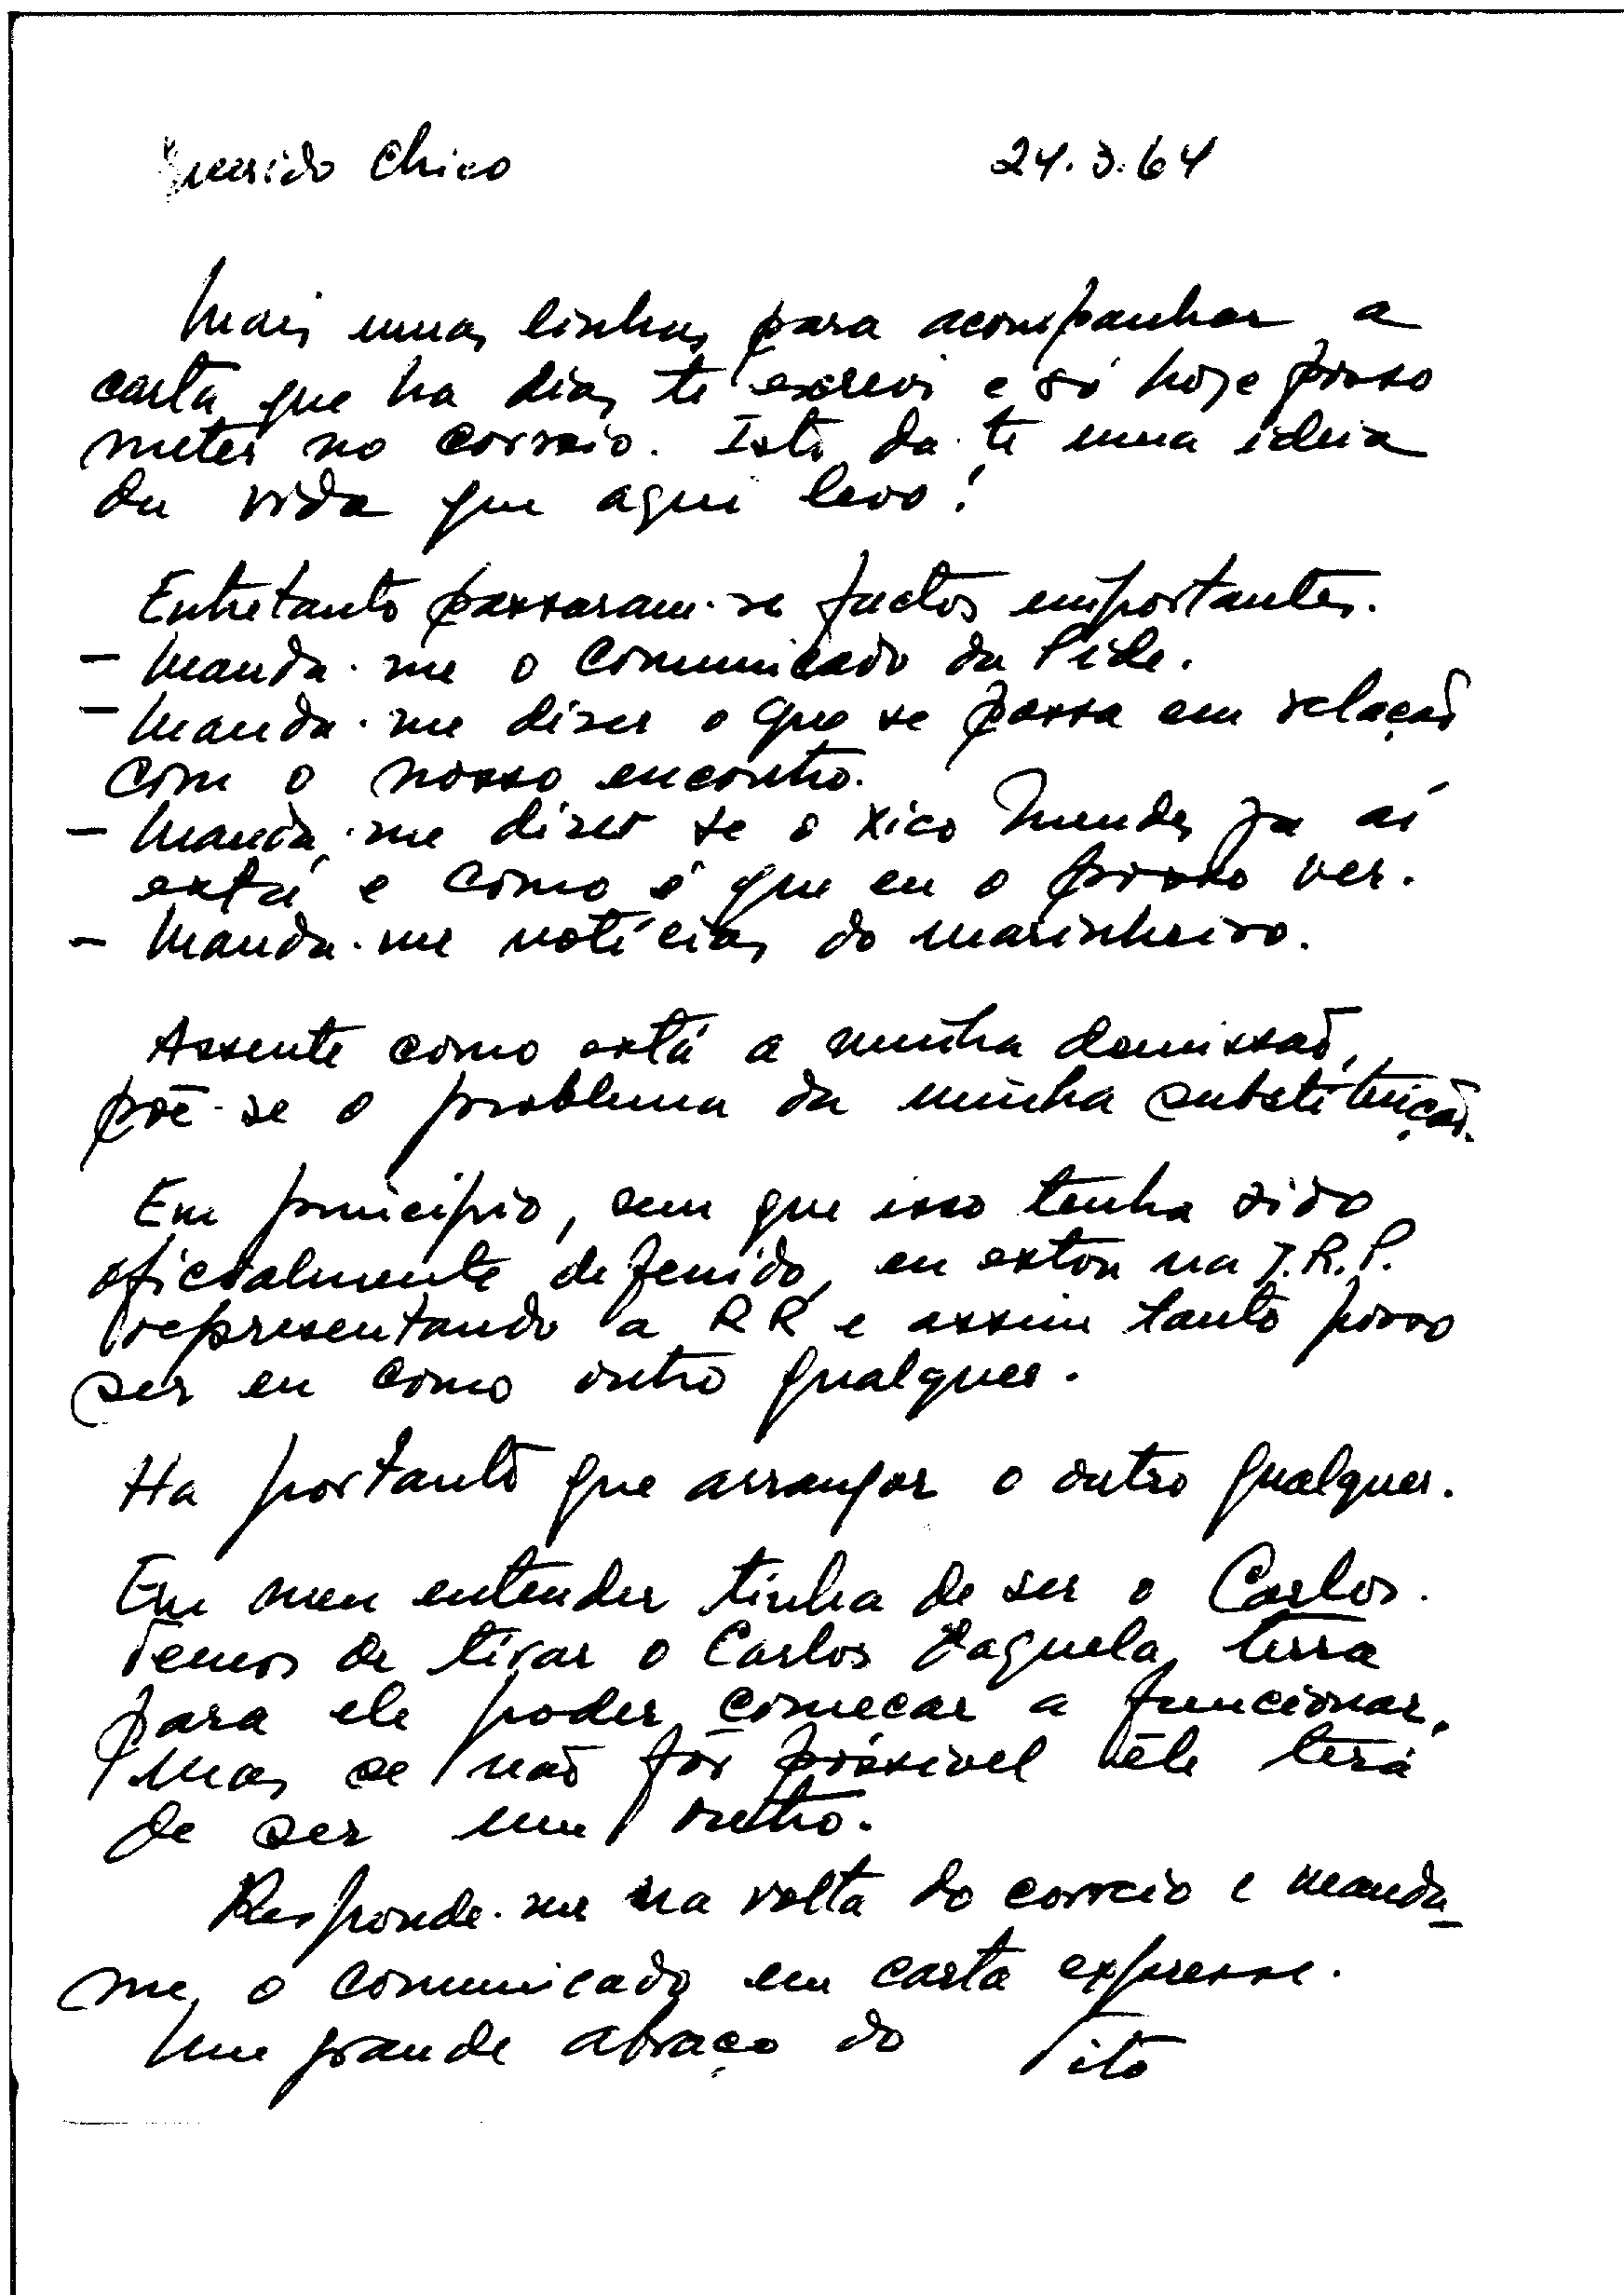 Querido Chico 24.3.64
Mais umas linhas para acompanhar a
carta que ha dias te escrevi e só hoje posso
meter no correio. Isto da-te uma ideia
da vida que aqui levo!
Entretanto passaram-se factos emportantes.
- Manda-me o comunicado da Pide.
- Manda-me dizer o que se passa em relação
com o nosso encontro.
- Manda-me dizer se o Xico Mendes ja aí
está e como é que eu o posso ver.
- Manda-me notícias do marinheiro.
Assente como está a minha demissão,
põe-se o problema da minha substituição.
Em principio, sem que isso tenha sido
oficialmente defenido, eu estou na J.R.P.
representando a RR e assim tanto posso
ser eu como outro qualquer.
Ha portanto que arranjar o outro qualquer.
Em meu entender tinha de ser o Carlos.
Temos de tirar o Carlos daquela terra
para ele poder começar a funcionar.
Mas se não fôr possivel êle terá
de ser um outro.
Responde-me na volta do correio e manda-
me o comunicado em carta expresse.
Um grande abraço do Tito